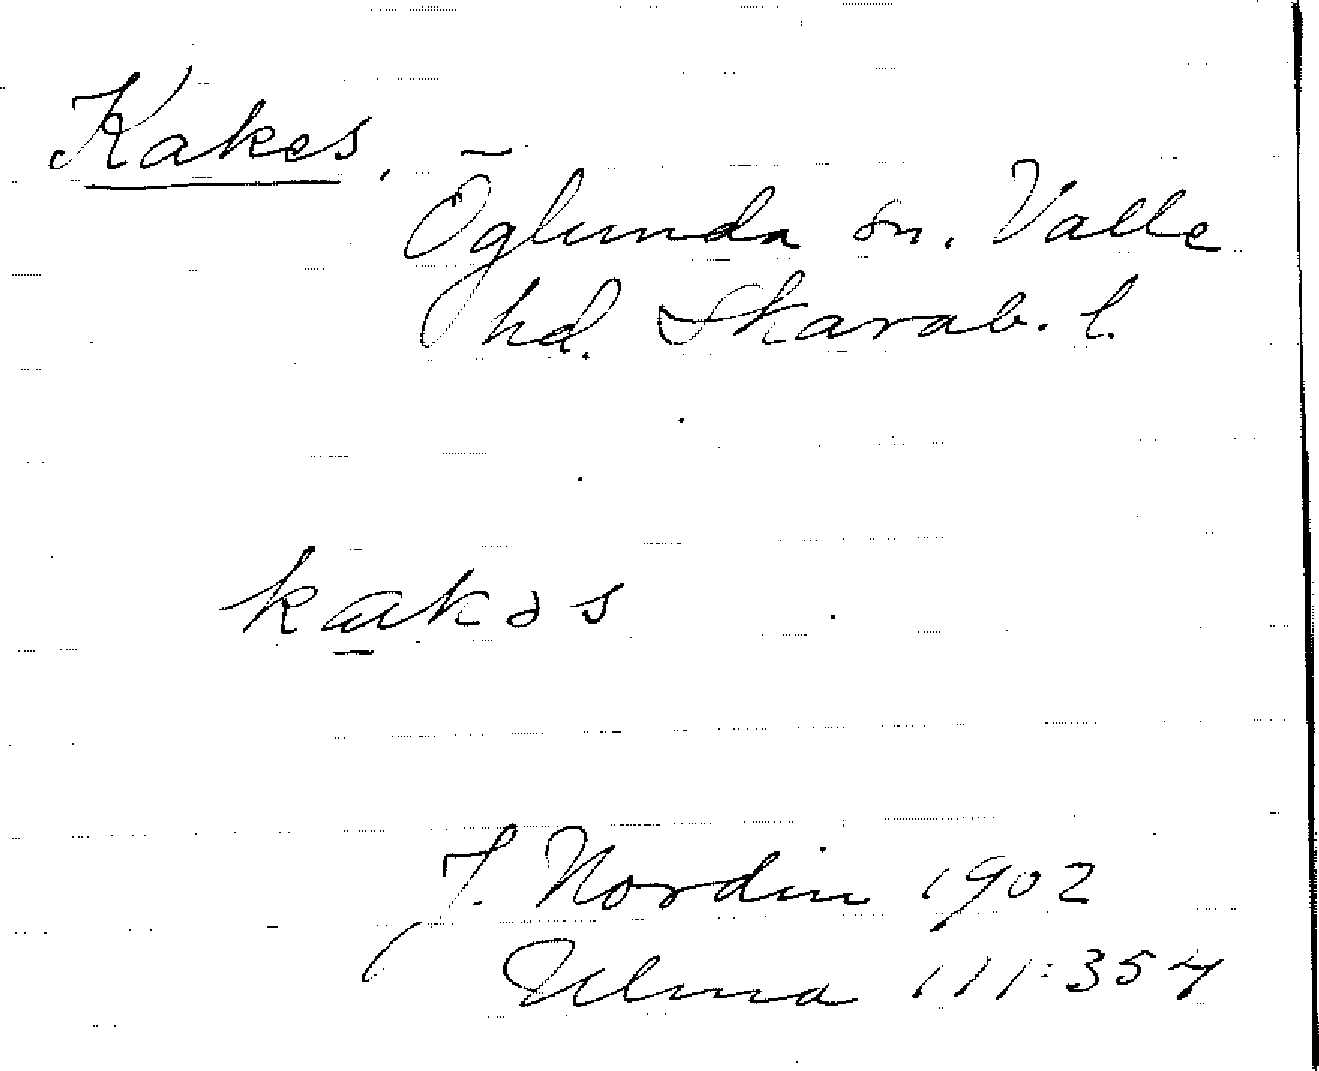 Kakes,
Öglunda sn. Valle
hd. Skarab. l.
kakəs
F. Nordin 1902
( Ulma 111:354